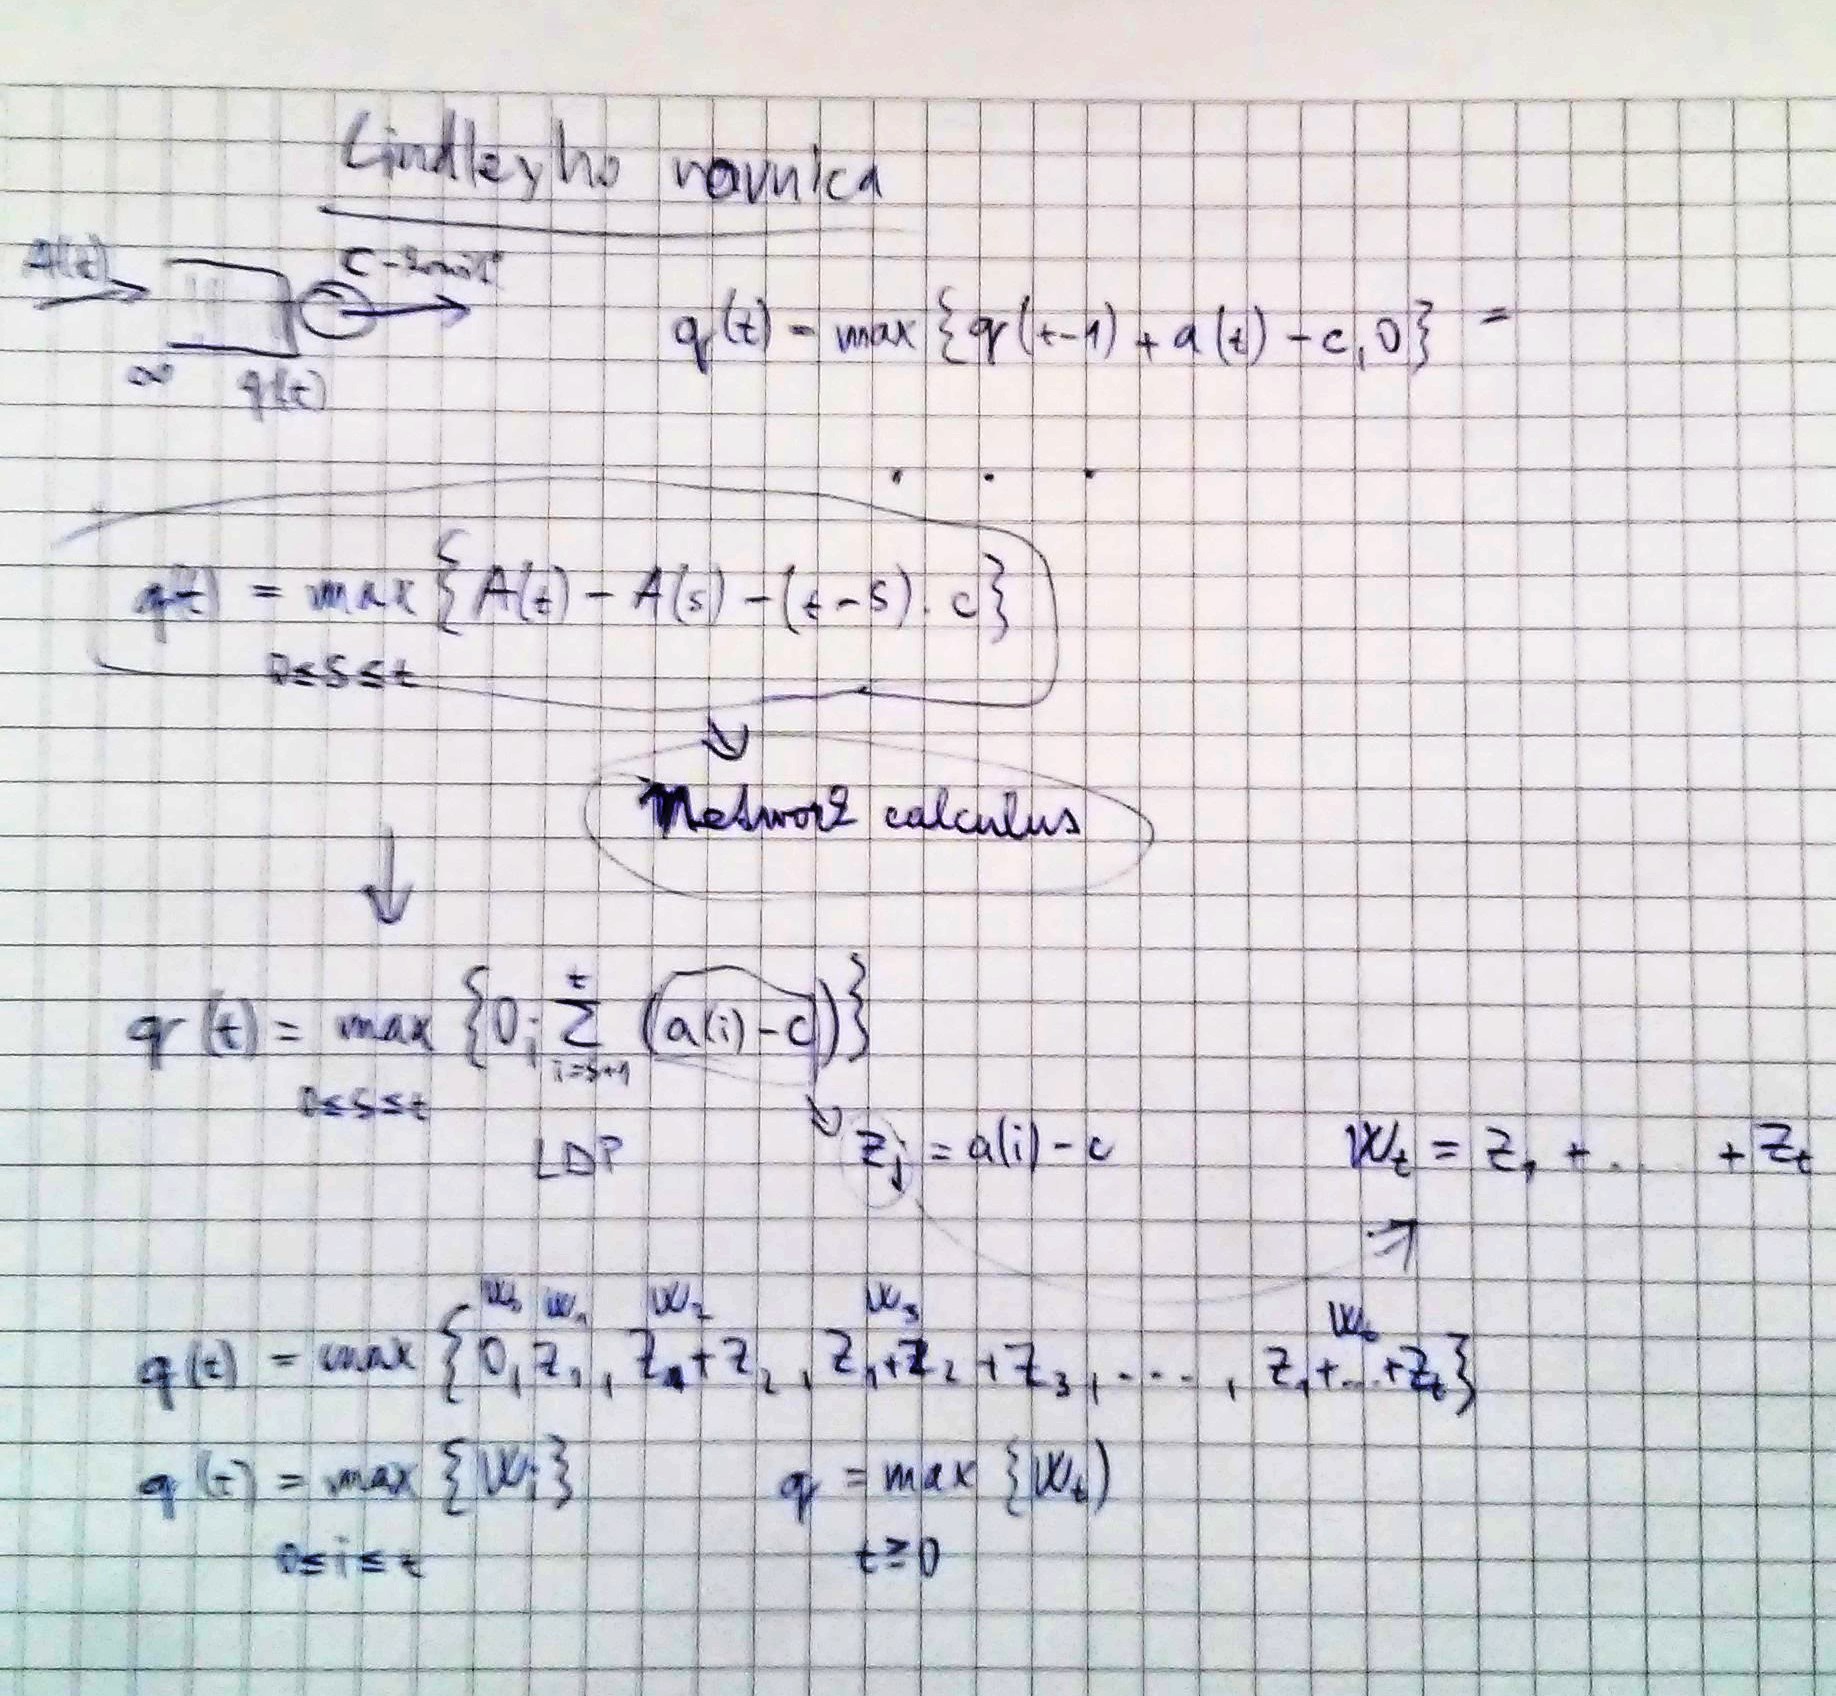 Lindleyho rovnica
A(t)
∞ q(t)
q(t) = max {q(t-1) + a(t) - c, 0} =
. . .
q(t) = max {A(t) - A(s) - (t-s) . c}
0≤s≤t
Network calculus
q(t) = max {0; Σ (a(i) - c)}
0≤s≤t i=s+1 t
LDP
Zj = a(i) - c
Wt = Z1 + ... + Zt
W0 W1 W2 W3 Wt
q(t) = max {0, Z1, Z1+Z2, Z1+Z2+Z3, ...., Z1+...+Zt}
q(t) = max {Wi}
0≤i≤t
q = max {Wt)
t≥0